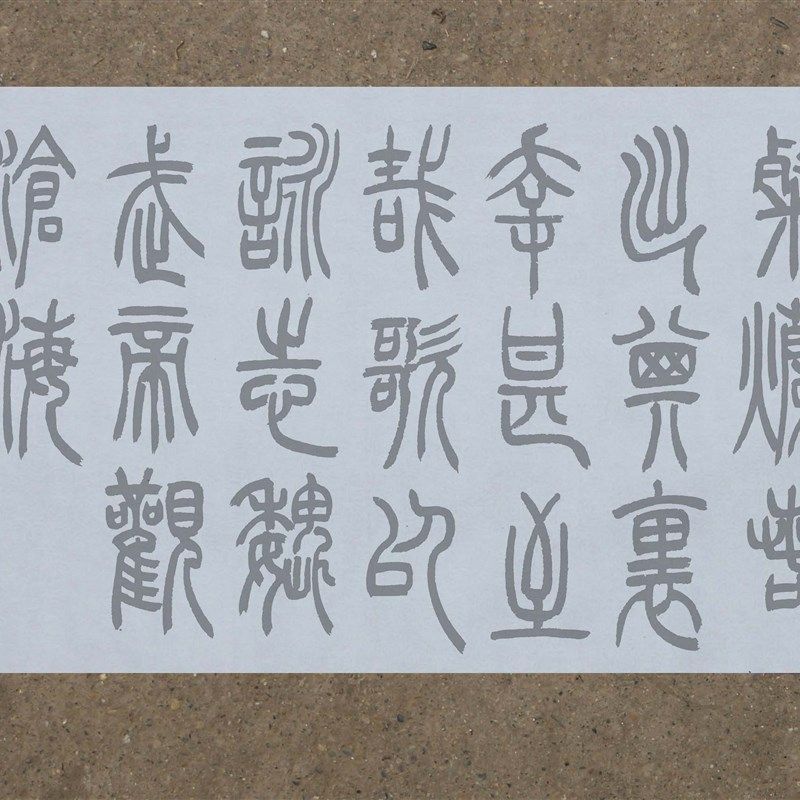 粲爛若
出其裏
幸甚至
哉歌以
詠志魏
武帝觀
滄海